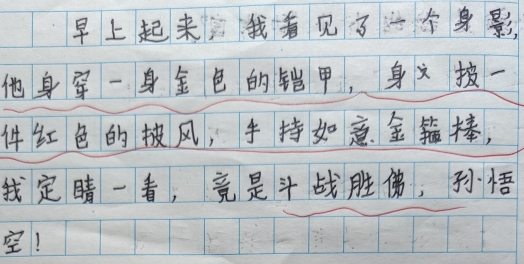 早上起来，我看见了一个身影，
他身穿一身金色的铠甲，身父披一
件红色的披风，手持如意金箍棒，
我定睛一看，竟是斗战胜佛，孙悟
空！